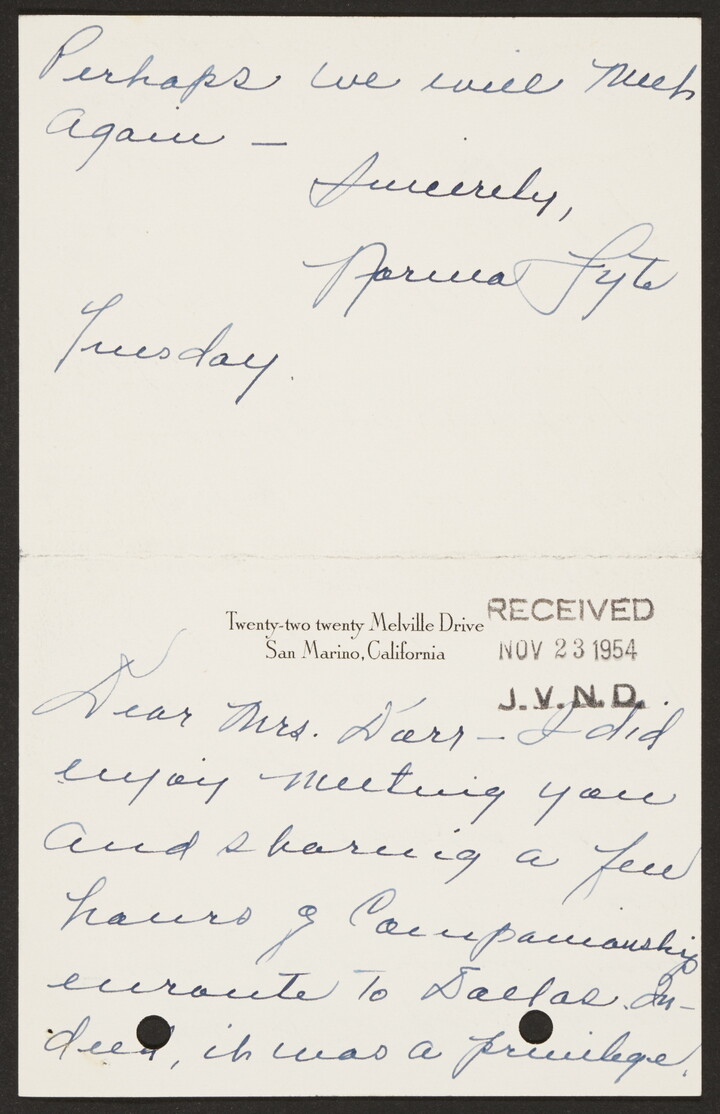 Perhaps we will meet
again —
Sincerely,
Norma Fyte
Tuesday.
Twenty-two twenty Melville Drive
San Marino, California
RECEIVED
NOV 23 1954
J.V.N.D.
Dear Mrs. Darr — I did
enjoy meeting you
and sharing a few
hours of companionship
enroute to Dallas. In-
deed, it was a privilege.